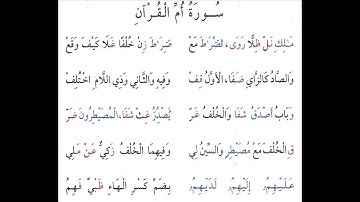 سُورَةُ أُمِّ الْقُرْآنِ
مَالِكِ نَلْ ظِلًّا رَوَى، السِّرَاطَ مَعْ سِرَاطَ زِنْ خُلْفًا غَلَا كَيْفَ وَقَعْ
وَالصَّادُ كَالزَّايِ ضَفَا، الْأَوَّلُ قِفْ وَفِيهِ وَالثَّانِي وَذِي اللَّامِ اخْتُلِفْ
وَبَابُ أَصْدَقُ شَفَا وَالْخُلْفُ غَرْ يُصْدِرُ غِثْ شَفَا، الْمُصَيْطِرُونَ ضَرْ
قِ الْخُلْفَ مَعْ مُصَيْطِرٍ وَالسِّينُ لِي وَفِيهِمَا الْخُلْفُ زَكِيٌّ عَنْ مَلِي
عَلَيْهِمُ إِلَيْهِمُ لَدَيْهِمُ بِضَمِّ كَسْرِ الْهَاءِ ظَبْيٌ فَهِمُ